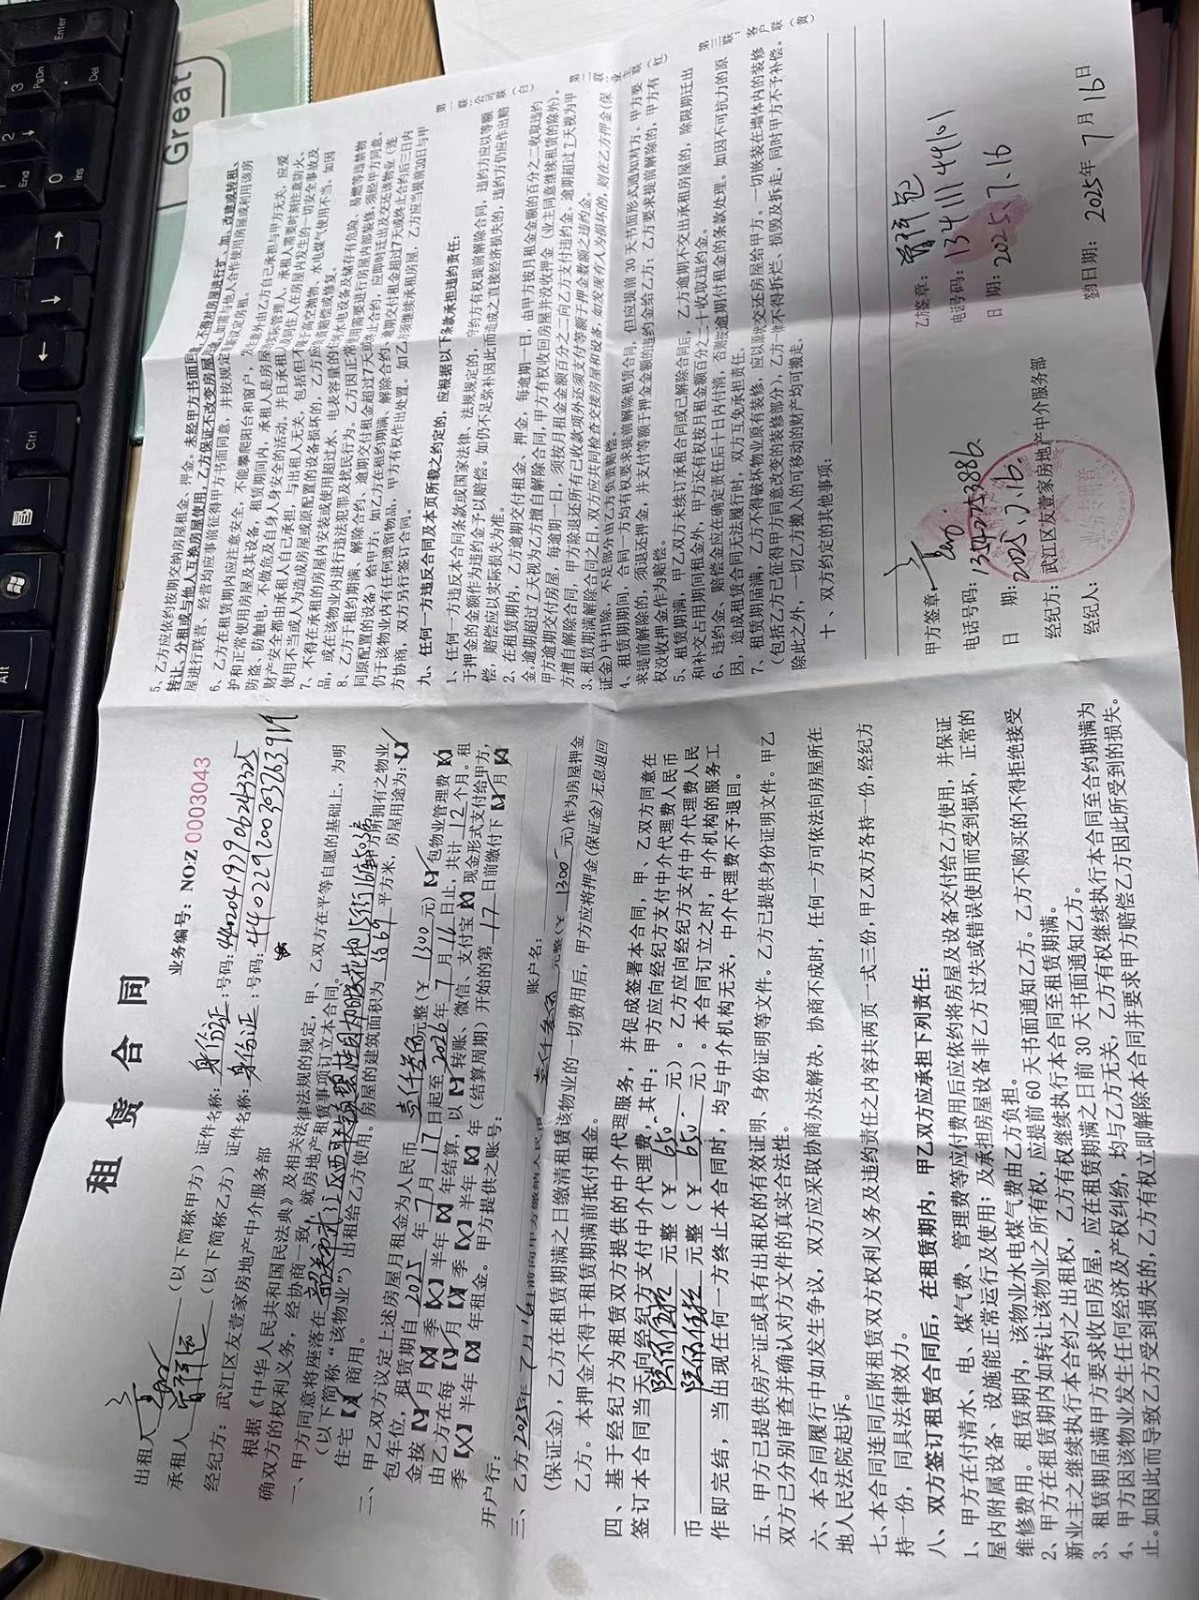 租赁合同
业务编号：NO:Z 0003043
出租人（以下简称甲方）证件名称：身份证：号码：
承租人（以下简称乙方）证件名称：身份证：号码：
经纪方：武江区友壹家房地产中介服务部
根据《中华人民共和国民法典》及相关法律法规的规定，甲、乙双方在平等自愿的基础上，为明
确双方的权利义务，经协商一致，就房地产租赁事项订立本合同。
一、甲方同意将座落在
（以下简称“该物业”）出租给乙方使用。房屋的建筑面积为 平方米，房屋用途为：
住宅【】商用。
二、甲乙双方议定上述房屋月租金为人民币 壹仟叁佰元整（￥ 1300 元）【】包物业管理费【】
包车位，租赁期自 2025 年 7 月 17 日起至 2026 年 7 月 16 日止，共计 12 个月。租
金按【】月【】季【】半年【】年结算，以【】转账、微信、支付宝【】现金形式支付给甲方，
由乙方在每【】月【】季【】半年【】年（结算周期）开始的第 17 日前缴付下【】月【】
季【】半年【】年租金。甲方提供之账号：
开户行： 账户名：
三、乙方 2025年7月16日 元整（￥ 1300 元）作为房屋押金
（保证金），乙方在租赁期满之日缴清租赁该物业的一切费用后，甲方应将押金（保证金）无息退回
乙方。本押金不得于租赁期满前抵付租金。
四、基于经纪方为租赁双方提供的中介代理服务，并促成签署本合同，甲、乙双方同意在
签订本合同当天向经纪方支付中介代理费，其中：甲方应向经纪方支付中介代理费人民币
陆佰伍拾 元整（￥ 650. 元）。乙方应向经纪方支付中介代理费人民
币 陆佰伍拾 元整（￥ 650. 元）。本合同订立之时，中介机构的服务工
作即完结，当出现任何一方终止本合同时，均与中介机构无关，中介代理费不予退回。
五、甲方已提供房产证或具有出租权的有效证明、身份证明等文件。乙方已提供身份证明文件。甲乙
双方已分别审查并确认对方文件的真实合法性。
六、本合同履行中如发生争议，双方应采取协商办法解决，协商不成时，任何一方可依法向房屋所在
地人民法院起诉。
七、本合同连同后附租赁双方权利义务及违约责任之内容共两页一式三份，甲乙双方各持一份，经纪方
持一份，同具法律效力。
八、双方签订租赁合同后，在租赁期内，甲乙双方应承担下列责任：
1、甲方在付清水、电、煤气费、管理费等应付费用后应依约将房屋及设备交付给乙方使用，并保证
屋内附属设备、设施能正常运行及使用；及承担房屋设备非乙方过失或错误使用而受到损坏，正常的
维修费用。租赁期内，该物业水电煤气费由乙方负担。
2、甲方在租赁期内如转让该物业之所有权，应提前 60 天书面通知乙方。乙方不购买的不得拒绝接受
新业主之继续执行本合约之出租权，乙方有权继续执行本合同至租赁期满。
3、租赁期届满甲方要求收回房屋，应在租赁期满之日前 30 天书面通知乙方。
4、甲方因该物业发生任何经济及产权纠纷，均与乙方无关，乙方有权继续执行本合同至合约期满为
止。如因此而导致乙方受到损失的，乙方有权立即解除本合同并要求甲方赔偿乙方因此所受到的损失。
5、乙方应依约按期交纳房屋租金、押金。未经甲方书面同
转让、分租或与他人互换房屋使用，乙方保证不改变房屋
屋进行联营、经营均应事前征得甲方书面同意，并按规定
6、乙方在租赁期内应注意安全，不能攀爬阳台和窗户，
护和正常使用房屋及其设备，租赁期间内，承租人是房屋
防盗、防触电，不做危及自身人身安全的活动，并且承租
财产安全都由承租人自己承担，与出租人无关，包括但不
使用不当或人为造成房屋或原配置的设备损坏的，乙方应
7、不得在承租的房屋内安装或使用超过水、电表容量的
品，或在该物业内进行违法犯罪及扰民行为。乙方因正常
8、乙方于租约期满、解除合约、逾期交付租金超过7天或
同原配置的设备，给甲方；如乙方在租约期满、解除合约、逾期交付租金超过7天或终止合约后三日内
仍于该物业内有任何遗留物品，甲方有权作出处置。如乙方须继续承租房屋，乙方应当提前30日与甲
方协商，双方另行签订合同。
九、任何一方违反合同及本页所载之约定的，应根据以下条款承担违约责任：
1、任何一方违反本合同条款或国家法律、法规规定的，守约方有权提前解除合同，违约方应以等额
于押金的金额作为违约金予以赔偿。如仍不足弥补因此而造成之直接经济损失的，违约方仍应作出赔
偿，赔偿应以实际损失为准。
2、在租赁期内，乙方逾期交付租金、押金，每逾期一日，由甲方按月租金金额的百分之二收取违约
金。逾期超过 7 天视为乙方擅自解除合同，甲方有权收回房屋并没收押金（业主同意继续租赁的除外）。
甲方逾期交付房屋，每逾期一日，须按月租金金额百分之二向乙方支付违约金，逾期超过 7 天视为甲
方擅自解除合同，甲方除退还所有已收款项外还须支付等额于押金数额之违约金。
3、租赁期满解除合同之日，双方应共同检查交接房屋和设备，如发现有人为损坏的，则在乙方押金（保
证金）中扣除，不足部分由乙方负责赔偿。
4、租赁期期间，合同一方均有权要求提前解除租赁合同，但应提前 30 天书面形式通知对方。甲方要
求提前解除的，须退还押金，并支付等额于押金金额的违约金给乙方；乙方要求提前解除的，甲方有
权没收押金作为赔偿。
5、租赁期满，甲乙双方未续订承租合同或已解除合同后，乙方逾期不交出承租房屋的，除限期迁出
和补交占用期间租金外，甲方还有权按月租金额百分之二十收取违约金。
6、违约金、赔偿金应在确定责任后十日内付清，否则按逾期付租金的条款处理。如因不可抗力的原
因，造成租赁合同无法履行时，双方互免承担责任。
7、租赁期届满，乙方不得破坏物业原有装修，应以原状交还房屋给甲方。一切嵌装在墙体内的装修
（包括乙方已征得甲方同意改变的装修部分），乙方一律不得拆烂、损毁及拆走，同时甲方不予补偿。
除此之外，一切乙方搬入的可移动的财产均可搬走。
十、双方约定的其他事项：
甲方签章：
电话号码：
日 期：2025.7.16.
经纪方：武江区友壹家房地产中介服务部
经纪人：
乙方签章：
电话号码：13411144101
日 期：2025.7.16
签约日期：2025年 7 月 16 日
第一联：公司联（白）
第二联：业主联（红）
第三联：客户联（黄）
Great